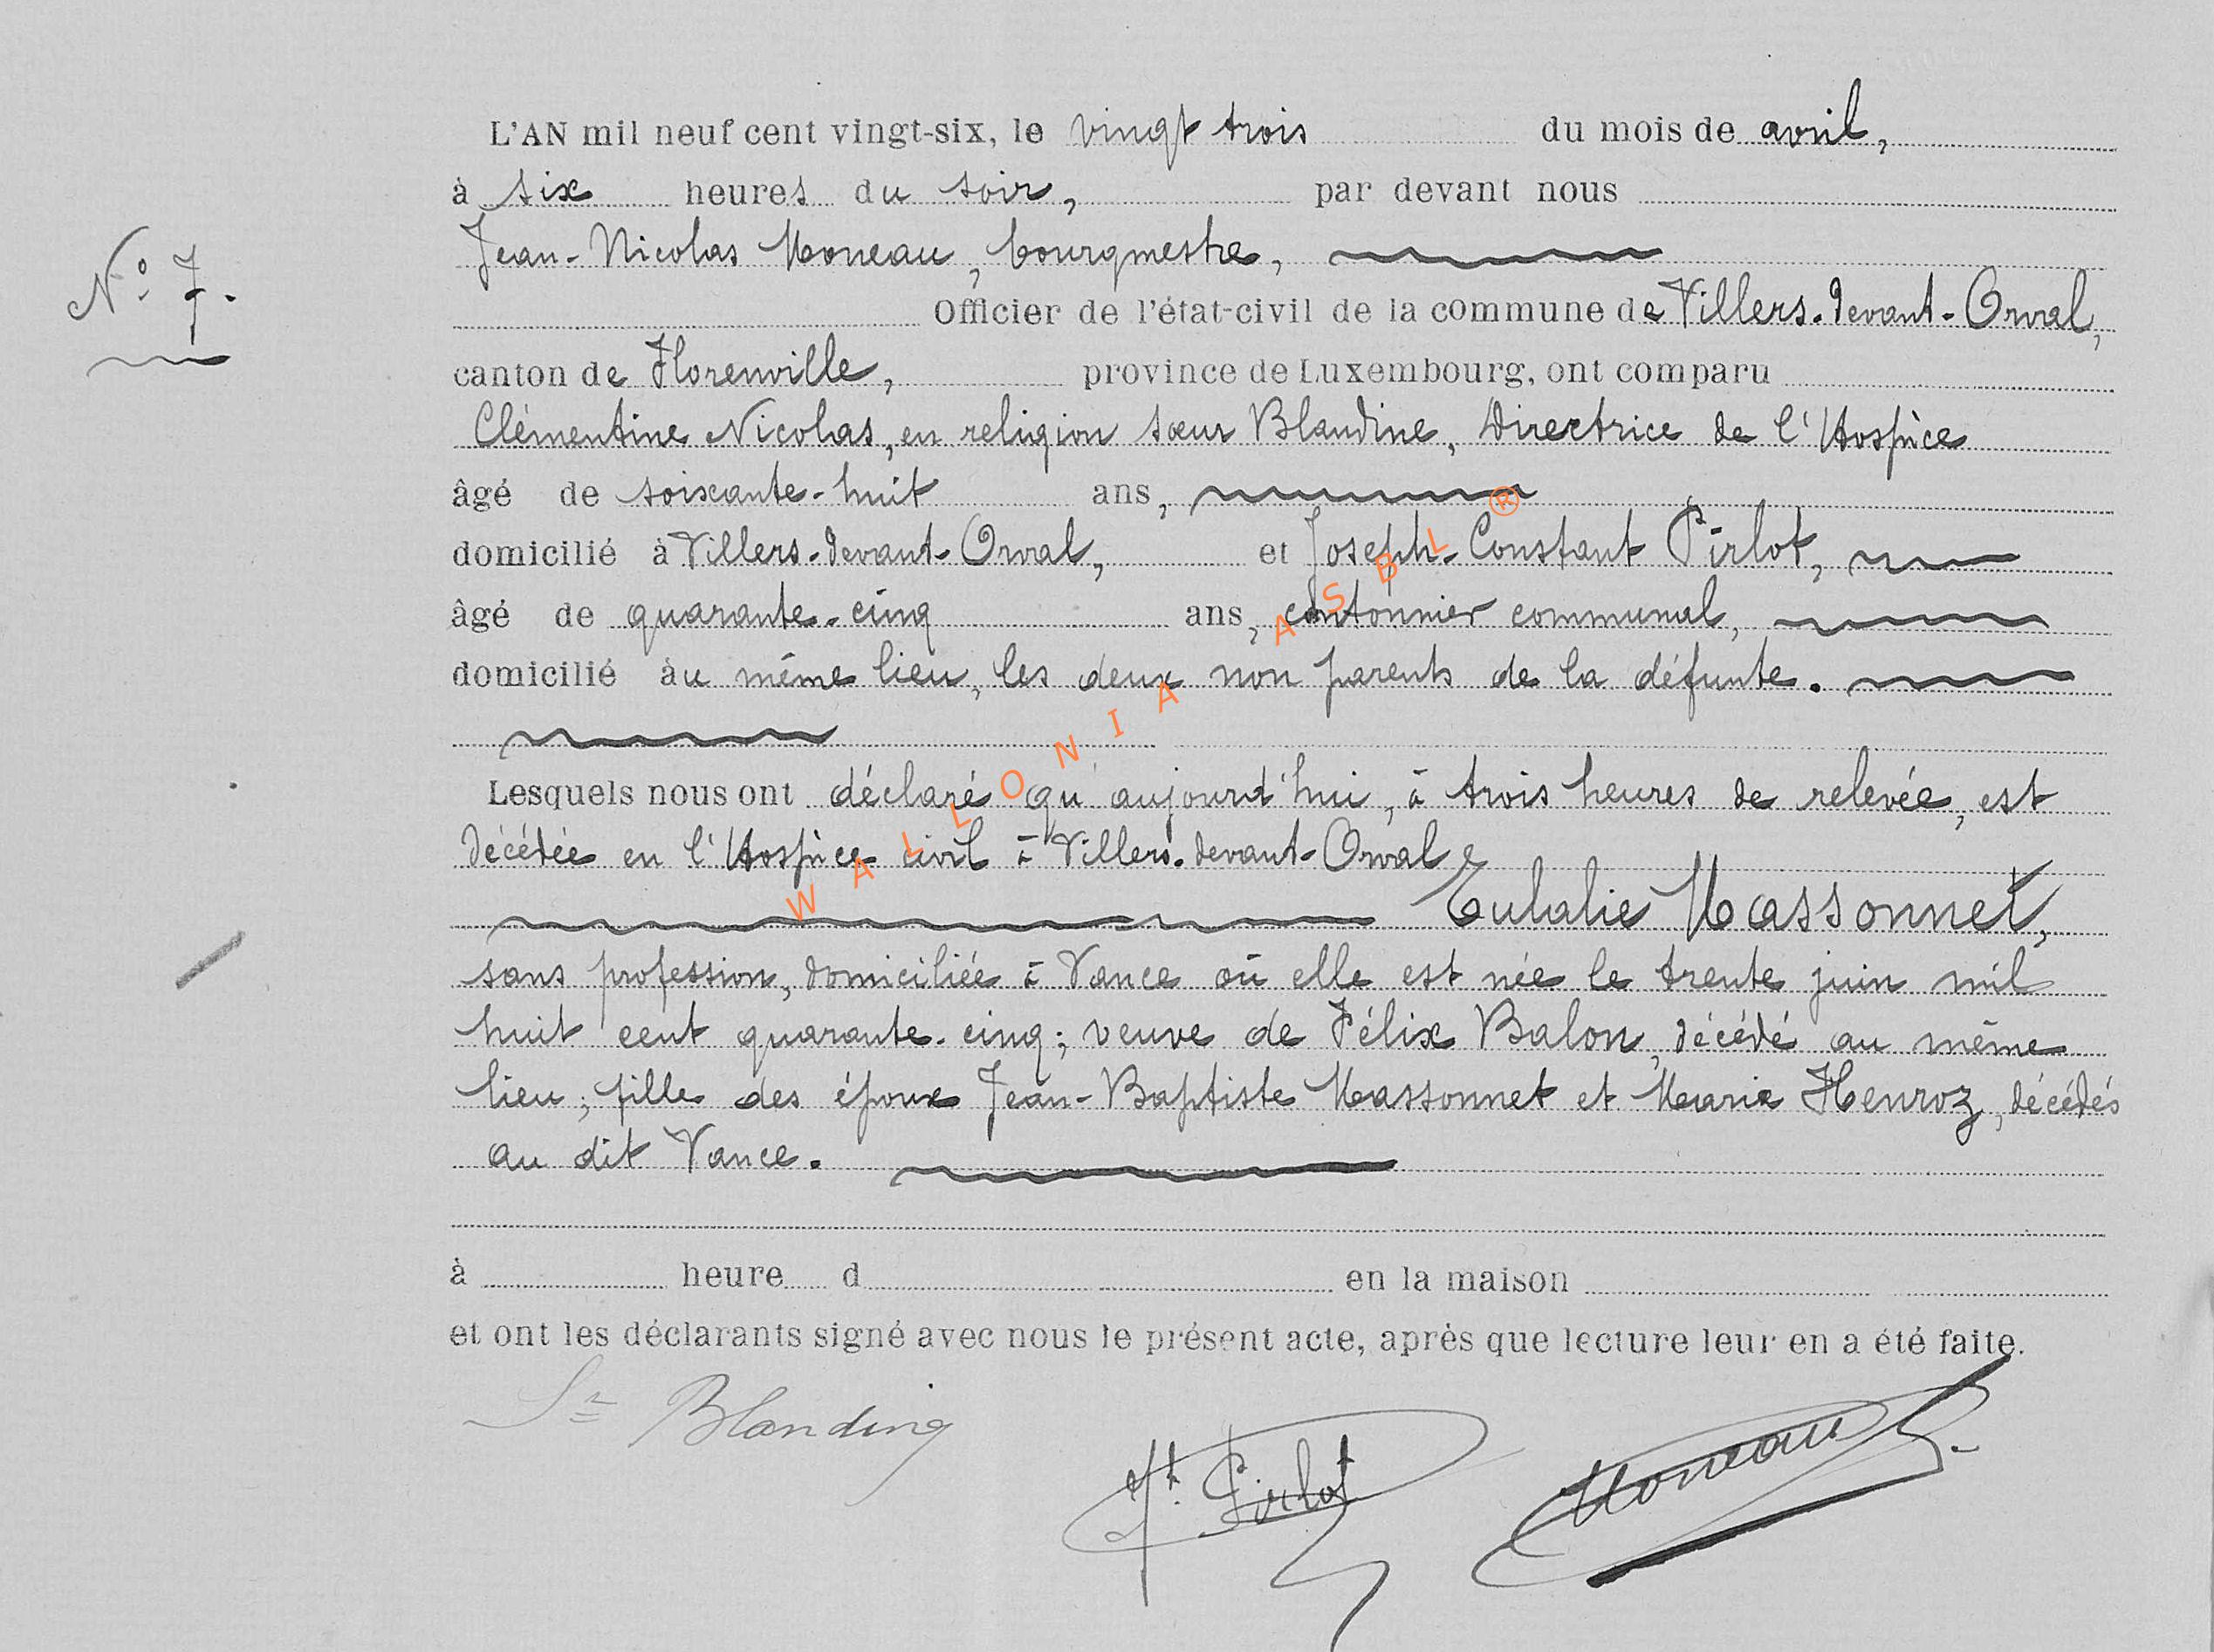 L'AN mil neuf cent vingt-six, le vingt trois du mois de avril,
à six heures du soir, par devant nous
Jean-Nicolas Moneau, bourgmestre,
N° 7.
Officier de l'état-civil de la commune de Villers-devant-Orval,
canton de Florenville, province de Luxembourg, ont comparu
Clémentine Nicolas, en religion sœur Blandine, Directrice de l'Hospice
âgé de soixante-huit ans,
domicilié à Villers-devant-Orval, et Joseph-Constant Pirlot,
âgé de quarante-cinq ans, cantonnier communal,
domicilié àu même lieu, les deux non parents de la défunte.
Lesquels nous ont déclaré qu'aujourd'hui, à trois heures de relevée, est
décédée en l'Hospice civil à Villers-devant-Orval
Eulalie Massonnet,
sans profession, domiciliée à Vance où elle est née le trente juin mil
huit cent quarante-cinq; veuve de Félix Balon, décédé au même
lieu; fille des époux Jean-Baptiste Massonnet et Marie Henroz, décédés
au dit Vance.
à heure d en la maison
et ont les déclarants signé avec nous le présent acte, après que lecture leur en a été faite.
Sr Blandine
Jh. Pirlot
Moneau
WALLONIA ASBL ®